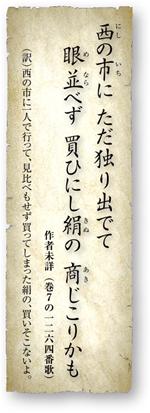 西の市に ただ独り出でて
眼並べず 買ひにし絹の 商じこりかも
作者未詳 (巻7の一二六四番歌)
(訳)西の市に一人で行って、見比べもせず買ってしまった絹の、買いそこないよ。
にし
いち
め
なら
きぬ
あき